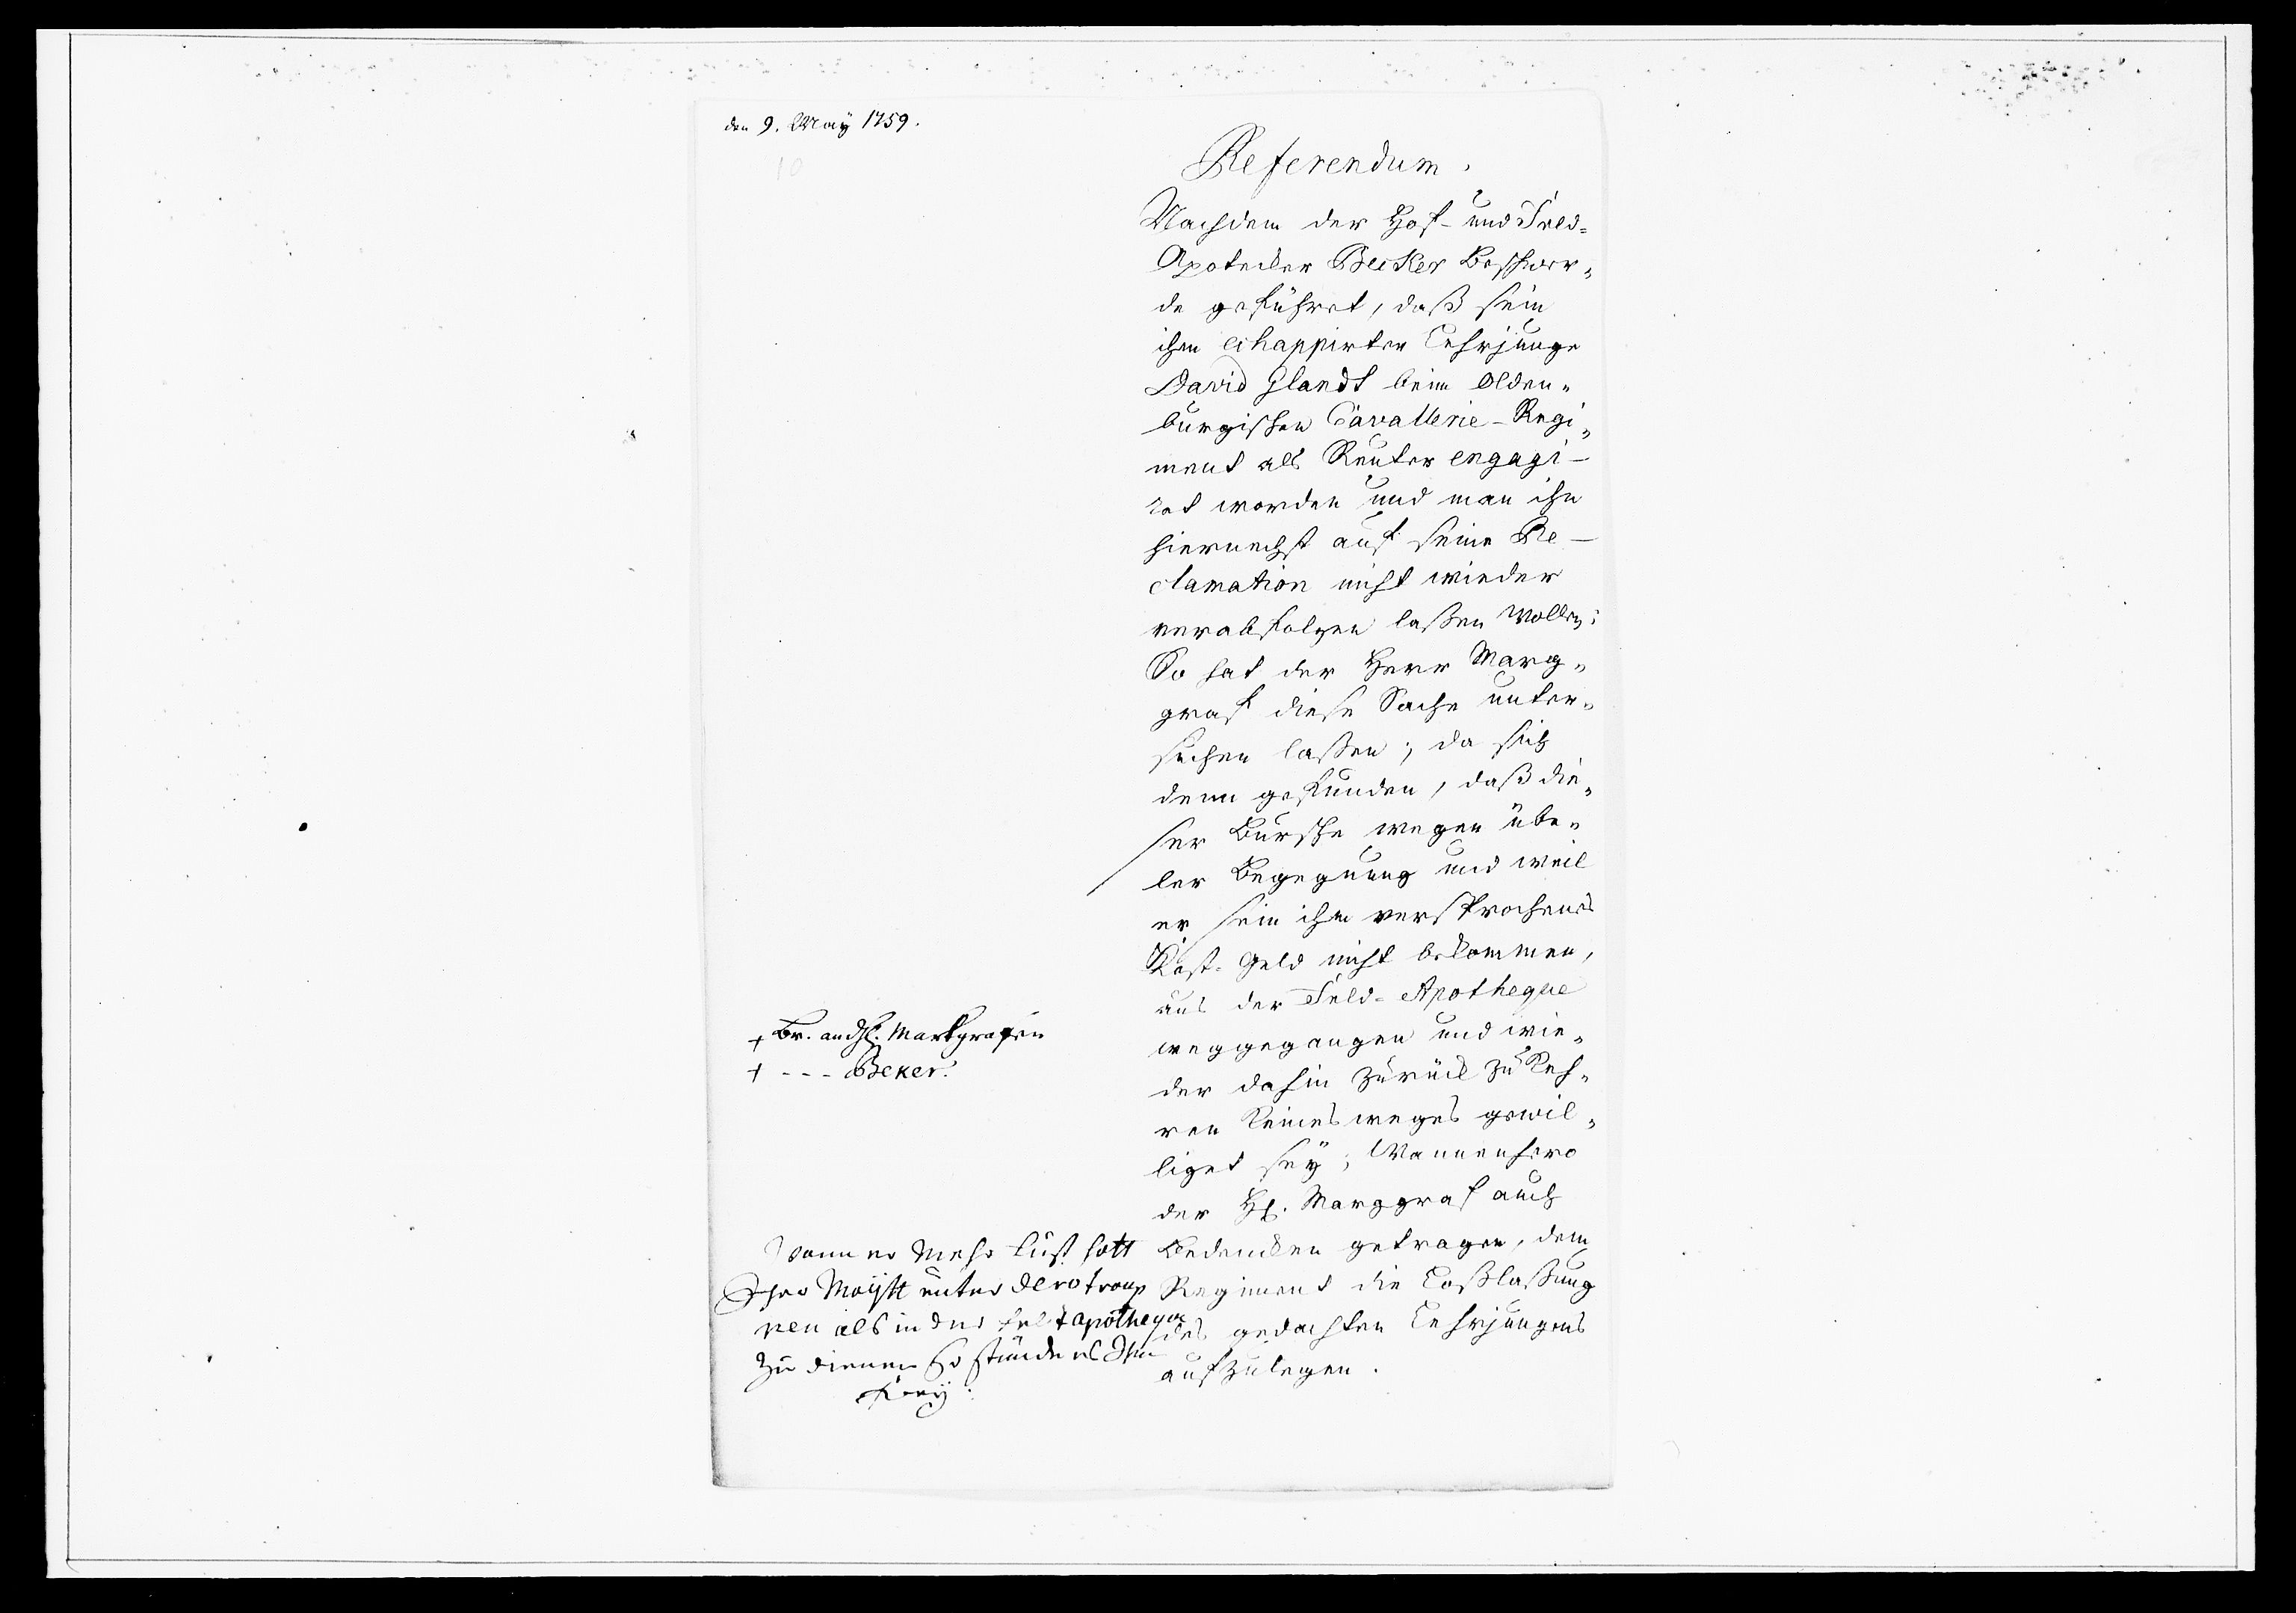 den 9. Maÿ 1759.
10
Referendum.
Nachdem der Hof- und Feld-
Apotecker Becker Beschwer-
de geführet, daß sein
ihm echappirter Lehrjunge
David Glandt beim Olden-
burgischen Cavallerie-Regi-
ment als Reuter engagi-
ret worden und man ihn
hiernechst auf seine Re-
clamation nicht wieder
verabfolgen laßen wollen;
So hat der Herr Marg-
graf diese Sache unter-
suchen laßen; da sich
denn gefunden, daß die-
ser Bursche wegen übe-
ler Begegnung und weil
er sein ihm versprochenes
Kost-Geld nicht bekommen,
aus der Feld-Apotheque
weggegangen und wie-
der dahin zurück zu keh-
ren keinesweges gewil-
liget seÿ; Wannenhero
der H. Marggraf auch
Bedencken getragen, dem
Regiment die Loßlaßung
des gedachten Lehrjungens
aufzulegen.
+ Br. an d H. Markgrafen
+ - - - Beker.
Wann er mehr lust hatt
Ihro Maÿtt unter dero troup
pen als in der feltapotheque
zu dienen So stünde es Ihm
freÿ: